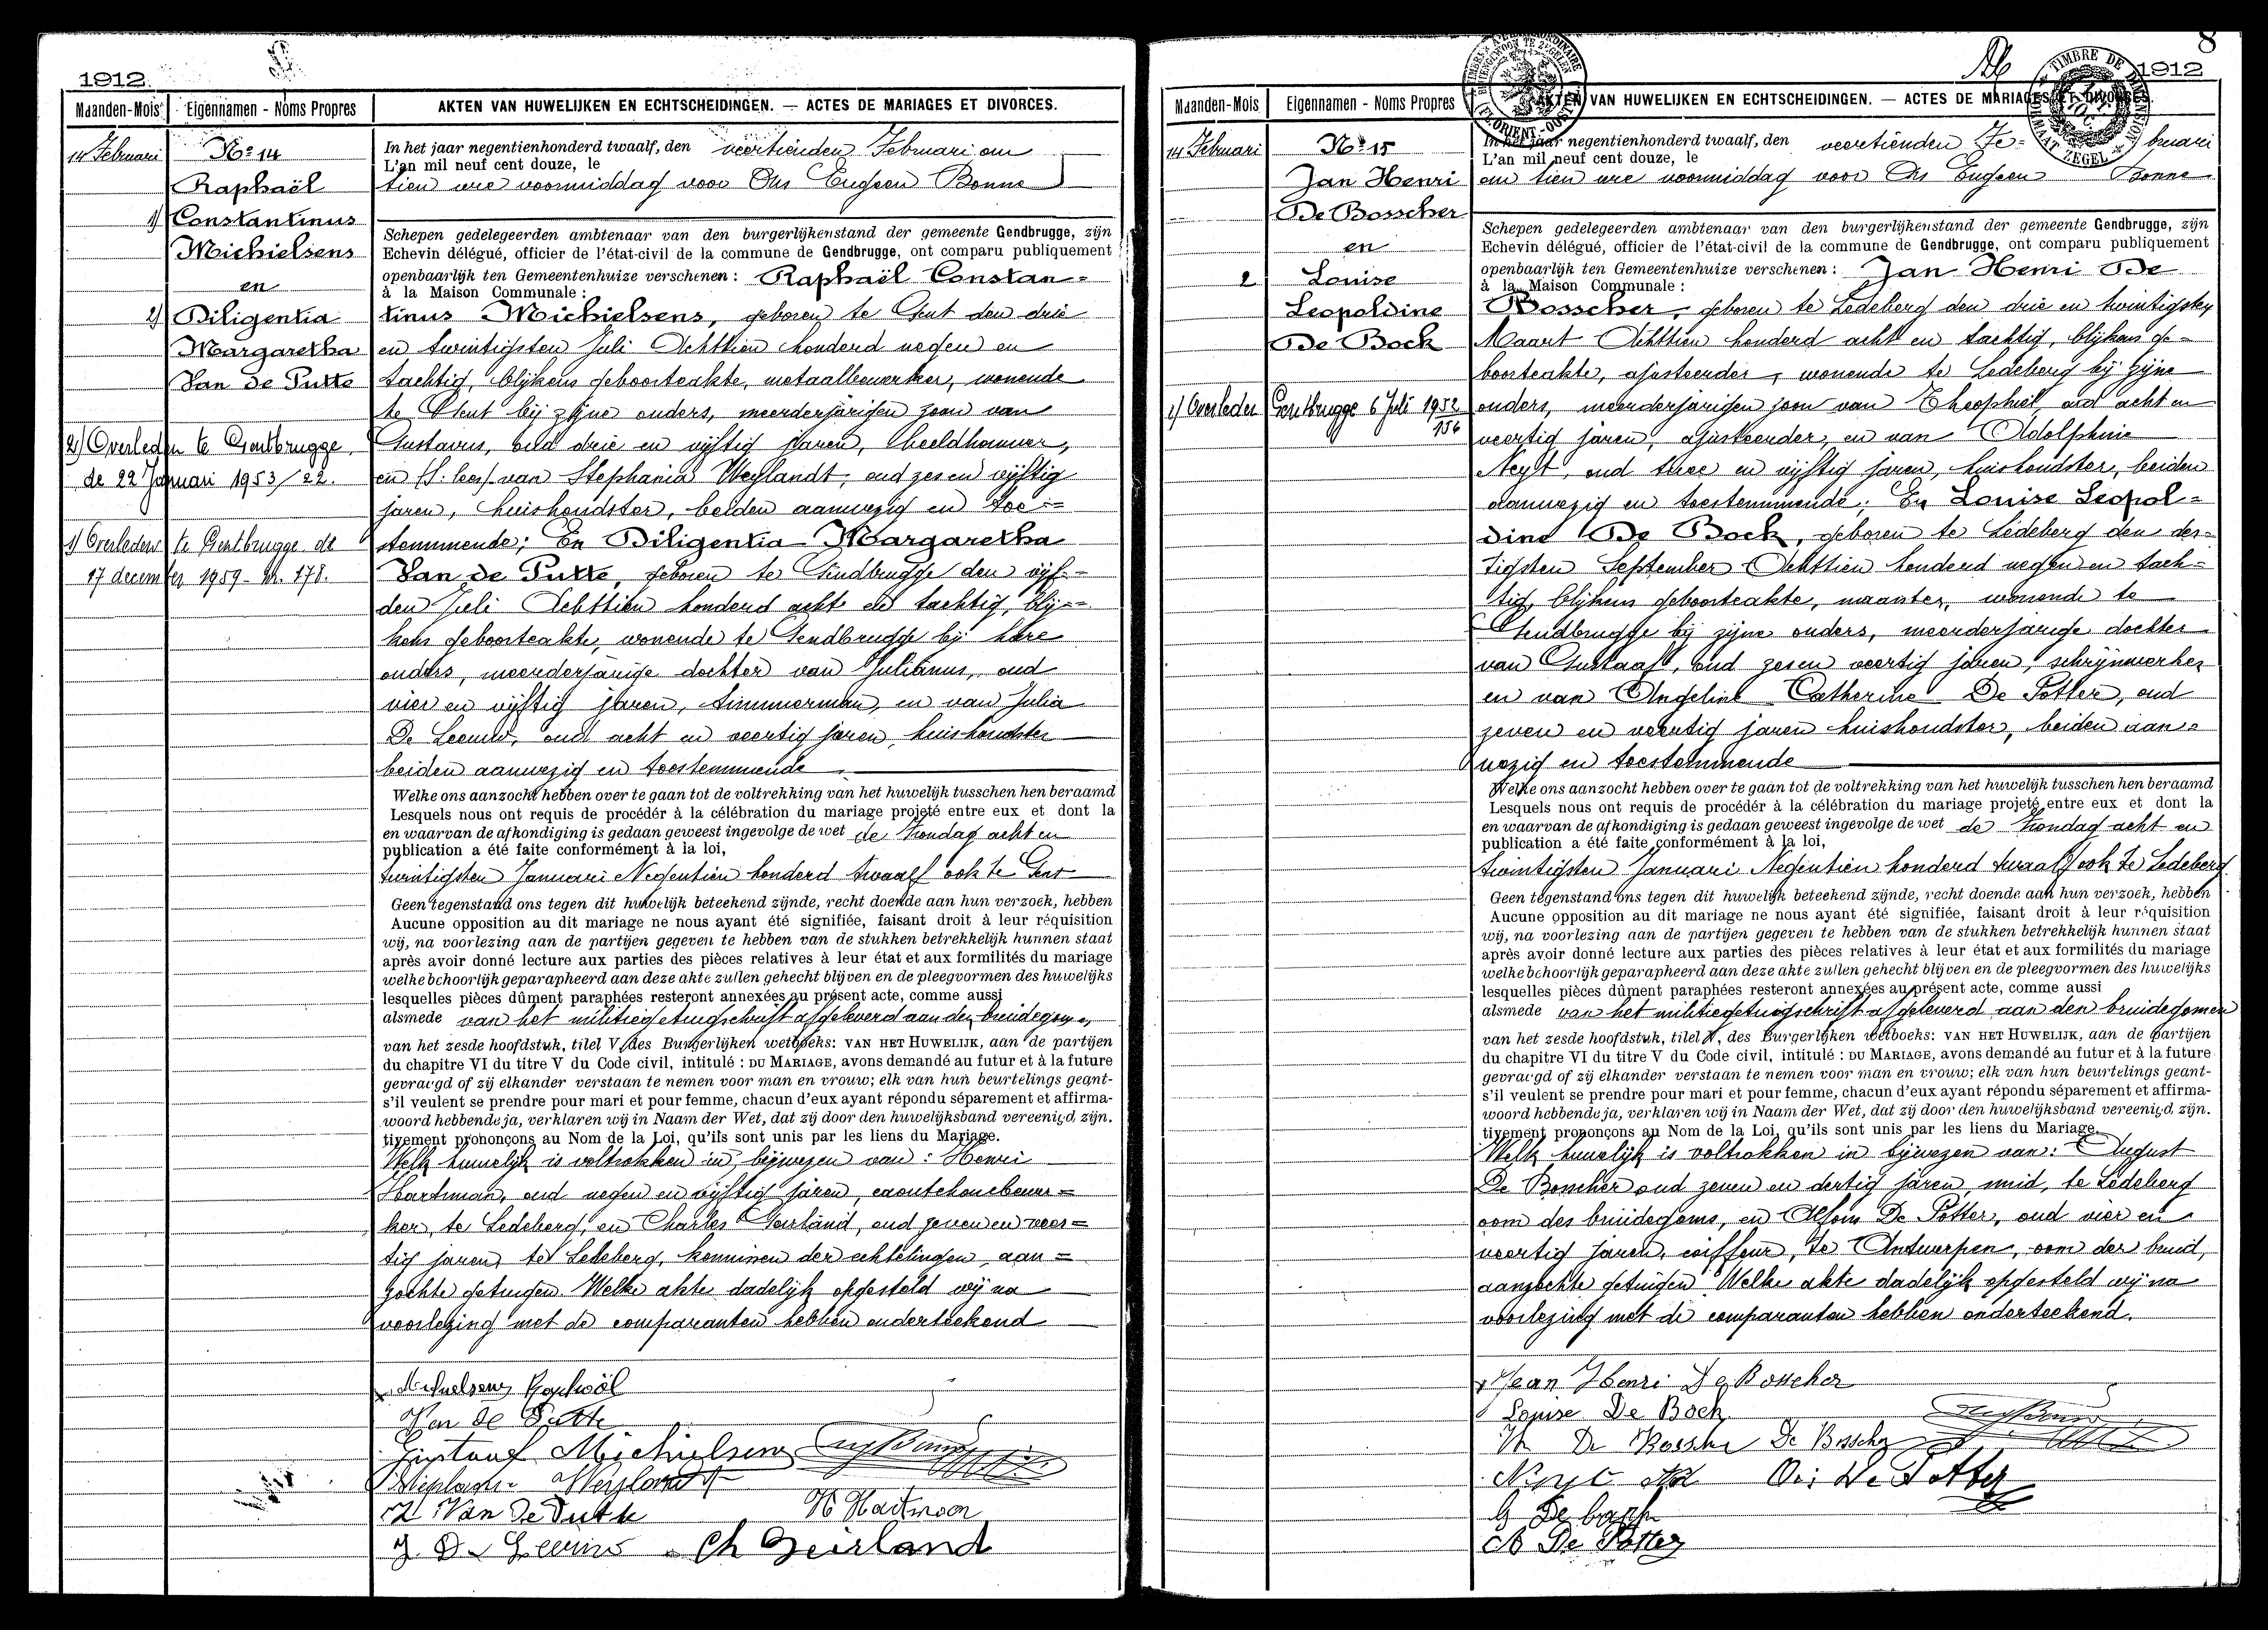 1912
Maanden-Mois Eigennamen - Noms Propres AKTEN VAN HUWELIJKEN EN ECHTSCHEIDINGEN. — ACTES DE MARIAGES ET DIVORCES.
14 Februari
No 14
Raphaël
1) Constantinus
Michielsens
en
2) Diligentia
Margaretha
Van de Putte
2) Overleden te Gentbrugge
de 22 Januari 1953/22.
1) Overleden te Gentbrugge de
17 december 1959 - Nr. 178.
In het jaar negentienhonderd twaalf, den veertienden Februari om
L'an mil neuf cent douze, le
tien ure voormiddag voor Ons Eugeen Bonne
Schepen gedelegeerden ambtenaar van den burgerlijkenstand der gemeente Gendbrugge, zijn
Echevin délégué, officier de l'état-civil de la commune de Gendbrugge, ont comparu publiquement
openbaarlijk ten Gemeentenhuize verschenen : Raphaël Constan=
à la Maison Communale :
tinus Michielsens, geboren te Gent den drie
en twintigsten Juli Achttien honderd negen en
tachtig, blijkens geboorteakte, metaalbewerker, wonende
te Gent bij zijne ouders, meerderjarigen zoon van
Gustavus, oud drie en vijftig jaren, beeldhouwer,
en (S. lees) van Stephania Weylandt, oud zes en vijftig
jaren, huishoudster, beiden aanwezig en toe=
stemmende; En Diligentia Margaretha
Van de Putte, geboren te Gendbrugge den vijf=
den Juli Achttien honderd acht en tachtig, blij=
kens geboorteakte, wonende te Gendbrugge bij hare
ouders, meerderjarige dochter van Julianus, oud
vier en vijftig jaren, timmerman, en van Julia
De Leeuw, oud acht en veertig jaren, huishoudster
beiden aanwezig en toestemmende
Welke ons aanzocht hebben over te gaan tot de voltrekking van het huwelijk tusschen hen beraamd
Lesquels nous ont requis de procédér à la célébration du mariage projeté entre eux et dont la
en waarvan de afkondiging is gedaan geweest ingevolge de wet de Zondag acht en
publication a été faite conformément à la loi,
twintigsten Januari Negentien honderd twaalf ook te Gent
Geen tegenstand ons tegen dit huwelijk beteekend zijnde, recht doende aan hun verzoek, hebben
Aucune opposition au dit mariage ne nous ayant été signifiée, faisant droit à leur réquisition
wij, na voorlezing aan de partijen gegeven te hebben van de stukken betrekkelijk hunnen staat
après avoir donné lecture aux parties des pièces relatives à leur état et aux formilités du mariage
welke behoorlijk geparapheerd aan deze akte zullen gehecht blijven en de pleegvormen des huwelijks
lesquelles pièces dûment paraphées resteront annexées au présent acte, comme aussi
alsmede van het militiegetuigschrift afgeleverd aan den bruidegom,
van het zesde hoofdstuk, titel V, des Burgerlijken wetboeks: VAN HET HUWELIJK, aan de partijen
du chapitre VI du titre V du Code civil, intitulé : DU MARIAGE, avons demandé au futur et à la future
gevraagd of zij elkander verstaan te nemen voor man en vrouw; elk van hun beurtelings geant-
s'il veulent se prendre pour mari et pour femme, chacun d'eux ayant répondu séparement et affirma-
woord hebbende ja, verklaren wij in Naam der Wet, dat zij door den huwelijksband vereenigd, zijn.
tivement prononçons au Nom de la Loi, qu'ils sont unis par les liens du Mariage.
Welk huwelijk is voltrokken in bijwezen van : Henri
Hartman, oud negen en vijftig jaren, caoutchoucbewer=
ker, te Ledeberg, en Charles Geirland, oud zeven en veer=
tig jaren, te Ledeberg, kennissen der echtelingen, aan=
zochte getuigen. Welke akte dadelijk opgesteld wij na
voorlezing met de comparanten hebben onderteekend
Michielsens Raphaël
Van de Putte
Gustaaf Michielsens
Stephanie Weylandt
Van De Putte H Hartman
J De Leeuw Ch Geirland
8
1912
Maanden-Mois Eigennamen - Noms Propres AKTEN VAN HUWELIJKEN EN ECHTSCHEIDINGEN. — ACTES DE MARIAGES ET DIVORCES.
14 Februari
No 15
Jan Henri
De Bosscher
en
2 Louise
Leopoldine
De Bock
1) Overleden Gentbrugge 6 Juli 1952
156
In het jaar negentienhonderd twaalf, den veertienden Fe=bruari
L'an mil neuf cent douze, le
om tien ure voormiddag voor Ons Eugeen Bonne
Schepen gedelegeerden ambtenaar van den burgerlijkenstand der gemeente Gendbrugge, zijn
Echevin délégué, officier de l'état-civil de la commune de Gendbrugge, ont comparu publiquement
openbaarlijk ten Gemeentenhuize verschenen : Jan Henri De
à la Maison Communale :
Bosscher, geboren te Ledeberg den drie en twintigsten
Maart Achttien honderd acht en tachtig, blijkens ge=
boorteakte, ajusteerder, wonende te Ledeberg bij zijne
ouders, meerderjarigen zoon van Theophiel, oud acht en
veertig jaren, ajusteerder, en van Adolphine
Neyt, oud twee en vijftig jaren, huishoudster, beiden
aanwezig en toestemmende; En Louise Leopol=
dine De Bock, geboren te Ledeberg den der=
tigsten September Achttien honderd negen en tach=
tig, blijkens geboorteakte, naaister, wonende te
Gendbrugge bij zijne ouders, meerderjarige dochter
van Gustaaf, oud zes en veertig jaren, schrijnwerker
en van Angeline Catherine De Potter, oud
zeven en veertig jaren huishoudster, beiden aan=
wezig en toestemmende
Welke ons aanzocht hebben over te gaan tot de voltrekking van het huwelijk tusschen hen beraamd
Lesquels nous ont requis de procédér à la célébration du mariage projeté entre eux et dont la
en waarvan de afkondiging is gedaan geweest ingevolge de wet de Zondag acht en
publication a été faite conformément à la loi,
twintigsten Januari Negentien honderd twaalf ook te Ledeberg.
Geen tegenstand ons tegen dit huwelijk beteekend zijnde, recht doende aan hun verzoek, hebben
Aucune opposition au dit mariage ne nous ayant été signifiée, faisant droit à leur réquisition
wij, na voorlezing aan de partijen gegeven te hebben van de stukken betrekkelijk hunnen staat
après avoir donné lecture aux parties des pièces relatives à leur état et aux formilités du mariage
welke behoorlijk geparapheerd aan deze akte zullen gehecht blijven en de pleegvormen des huwelijks
lesquelles pièces dûment paraphées resteront annexées au présent acte, comme aussi
alsmede van het militiegetuigschrift afgeleverd aan den bruidegomen
van het zesde hoofdstuk, titel V, des Burgerlijken wetboeks: VAN HET HUWELIJK, aan de partijen
du chapitre VI du titre V du Code civil, intitulé : DU MARIAGE, avons demandé au futur et à la future
gevraagd of zij elkander verstaan te nemen voor man en vrouw; elk van hun beurtelings geant-
s'il veulent se prendre pour mari et pour femme, chacun d'eux ayant répondu séparement et affirma-
woord hebbende ja, verklaren wij in Naam der Wet, dat zij door den huwelijksband vereenigd, zijn.
tivement prononçons au Nom de la Loi, qu'ils sont unis par les liens du Mariage.
Welk huwelijk is voltrokken in bijwezen van: August
De Boncher oud zeven en dertig jaren, smid, te Ledeberg
oom des bruidegoms, en Alfons De Potter, oud vier en
veertig jaren, coiffeur, te Antwerpen, oom der bruid,
aanzochte getuigen. Welke akte dadelijk opgesteld wij na
voorlezing met de comparanten hebben onderteekend.
Jean Henri De Bosscher
Louise De Bock
Th De Bossche De Bosscher
Neyt De Potter
De Potter